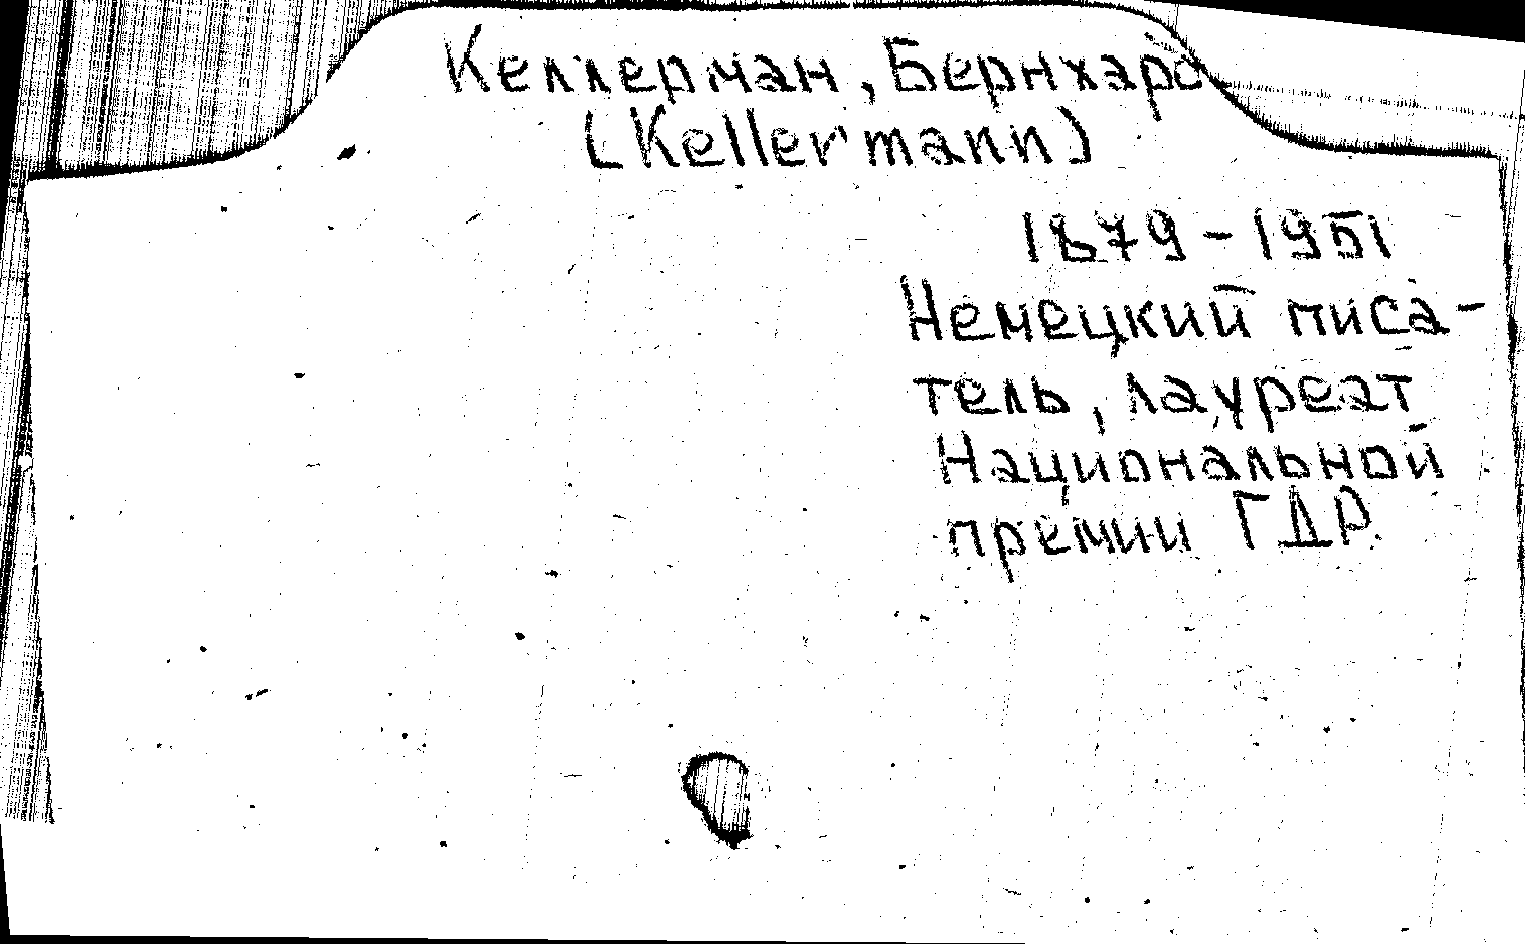 Келлерман, Бернхард
(Kellermann)
1879-1951
Немецкий писа-
тель, лауреат
Национальной
премии ГДР.